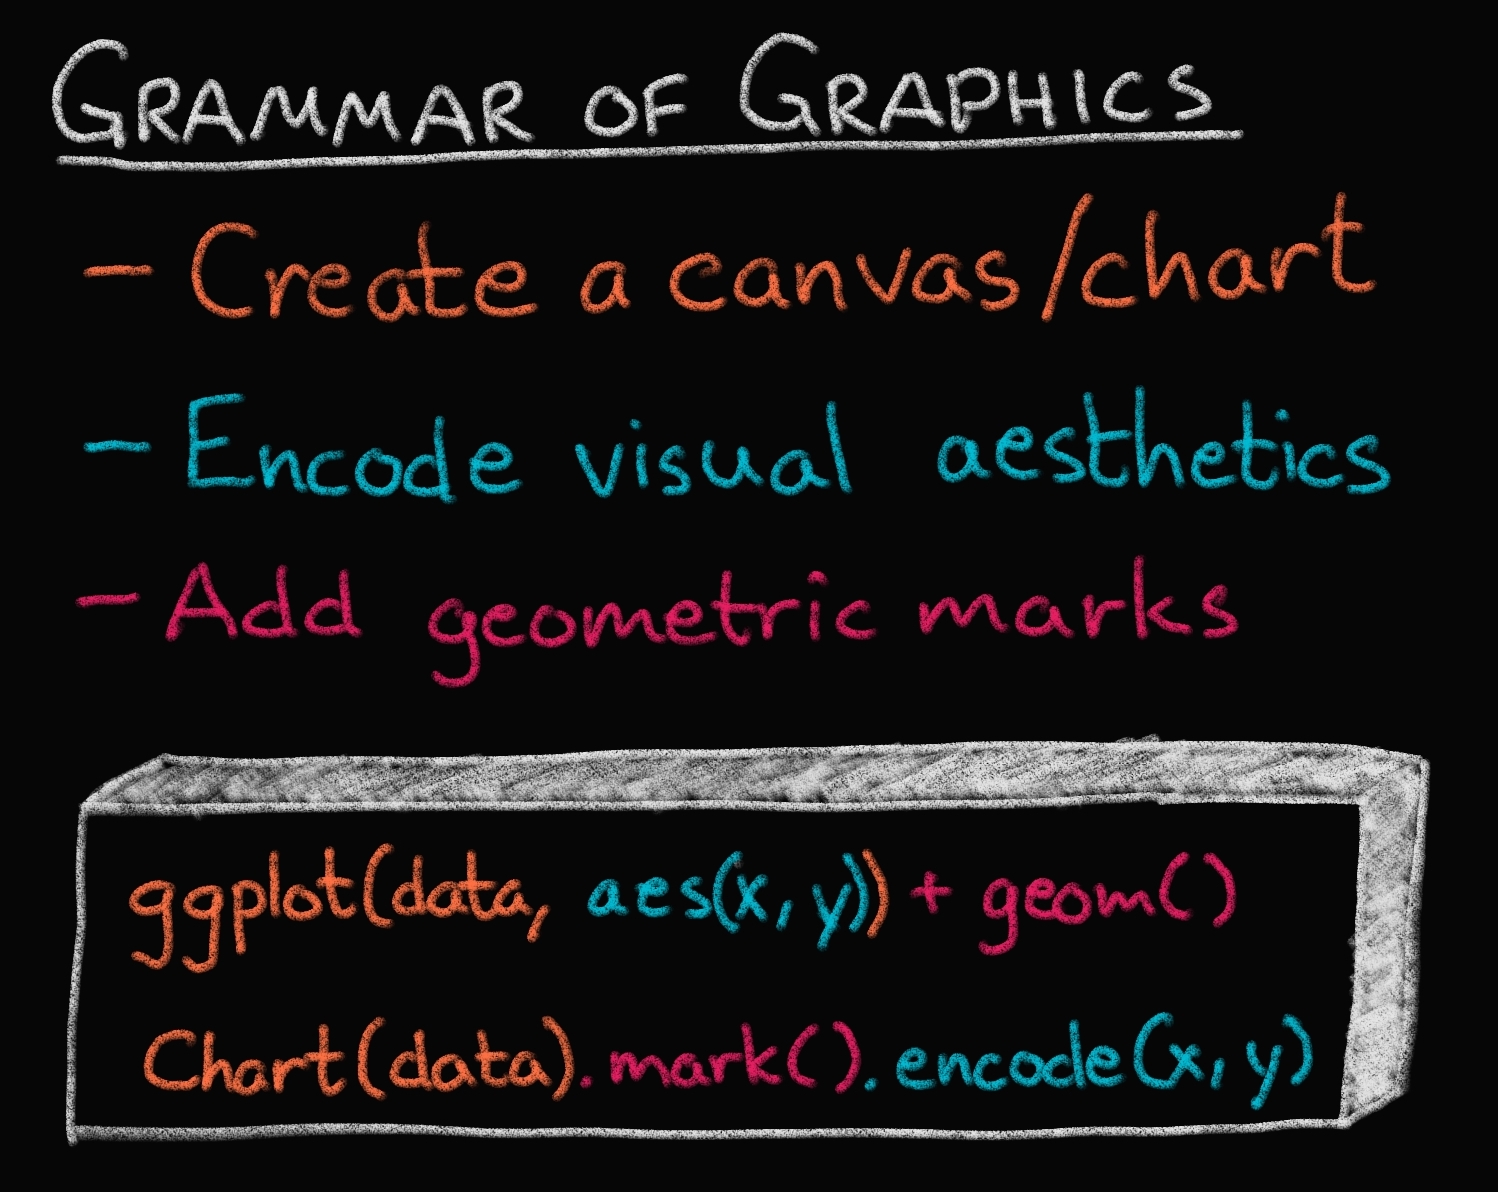 GRAMMAR OF GRAPHICS
- Create a canvas/chart
- Encode visual aesthetics
- Add geometric marks
ggplot(data, aes(x, y)) + geom()
Chart(data).mark().encode(x, y)